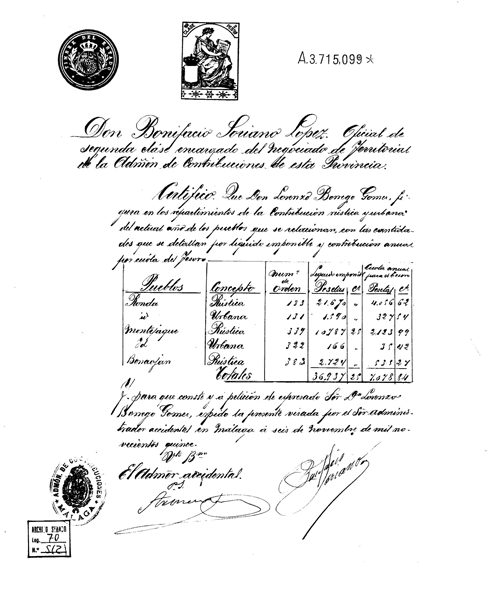 TIMBRE DEL ESTADO
A.3.715,099*
Don Bonifacio Soriano López. Oficial de
segunda clase encargado del Negociado de Territorial
de la Admón de Contribuciones de esta Provincia.
Certifico Que Don Lorenzo Borrego Gomez, fi-
gura en los repartimientos de la Contribución rústica y urbana
del actual año de los pueblos que se relacionan, con las cantida-
des que se detallan por líquido imponible y contribución anual
por cuota del Tesoro
Pueblos Concepto Numº de orden Líquido imponible Pesetas Cs Cuota anual para el Tesoro Pesetas Cs
Ronda Rústica 133 21.670 " 4.056 62
id Urbana 131 1.590 " 327 54
Montejaque Rústica 339 10.787 25 2.123 99
id Urbana 322 166 " 35 42
Benaoján Rústica 383 2.724 " 535 27
Totales 36.937 25 7.078 84
Y para que conste y á petición de espresado Sór Dn Lorenzo
Borrego Gomez, expido la presente visada por el Sór Adminis-
trador accidental en Málaga á seis de Noviembre de mil no-
vecientos quince.
Vto Bno
El Admor accidental.
Bonifacio Soriano
ADMÓN. DE CONTRIBUCIONES MÁLAGA
Leg. 70
N.º 5(2)